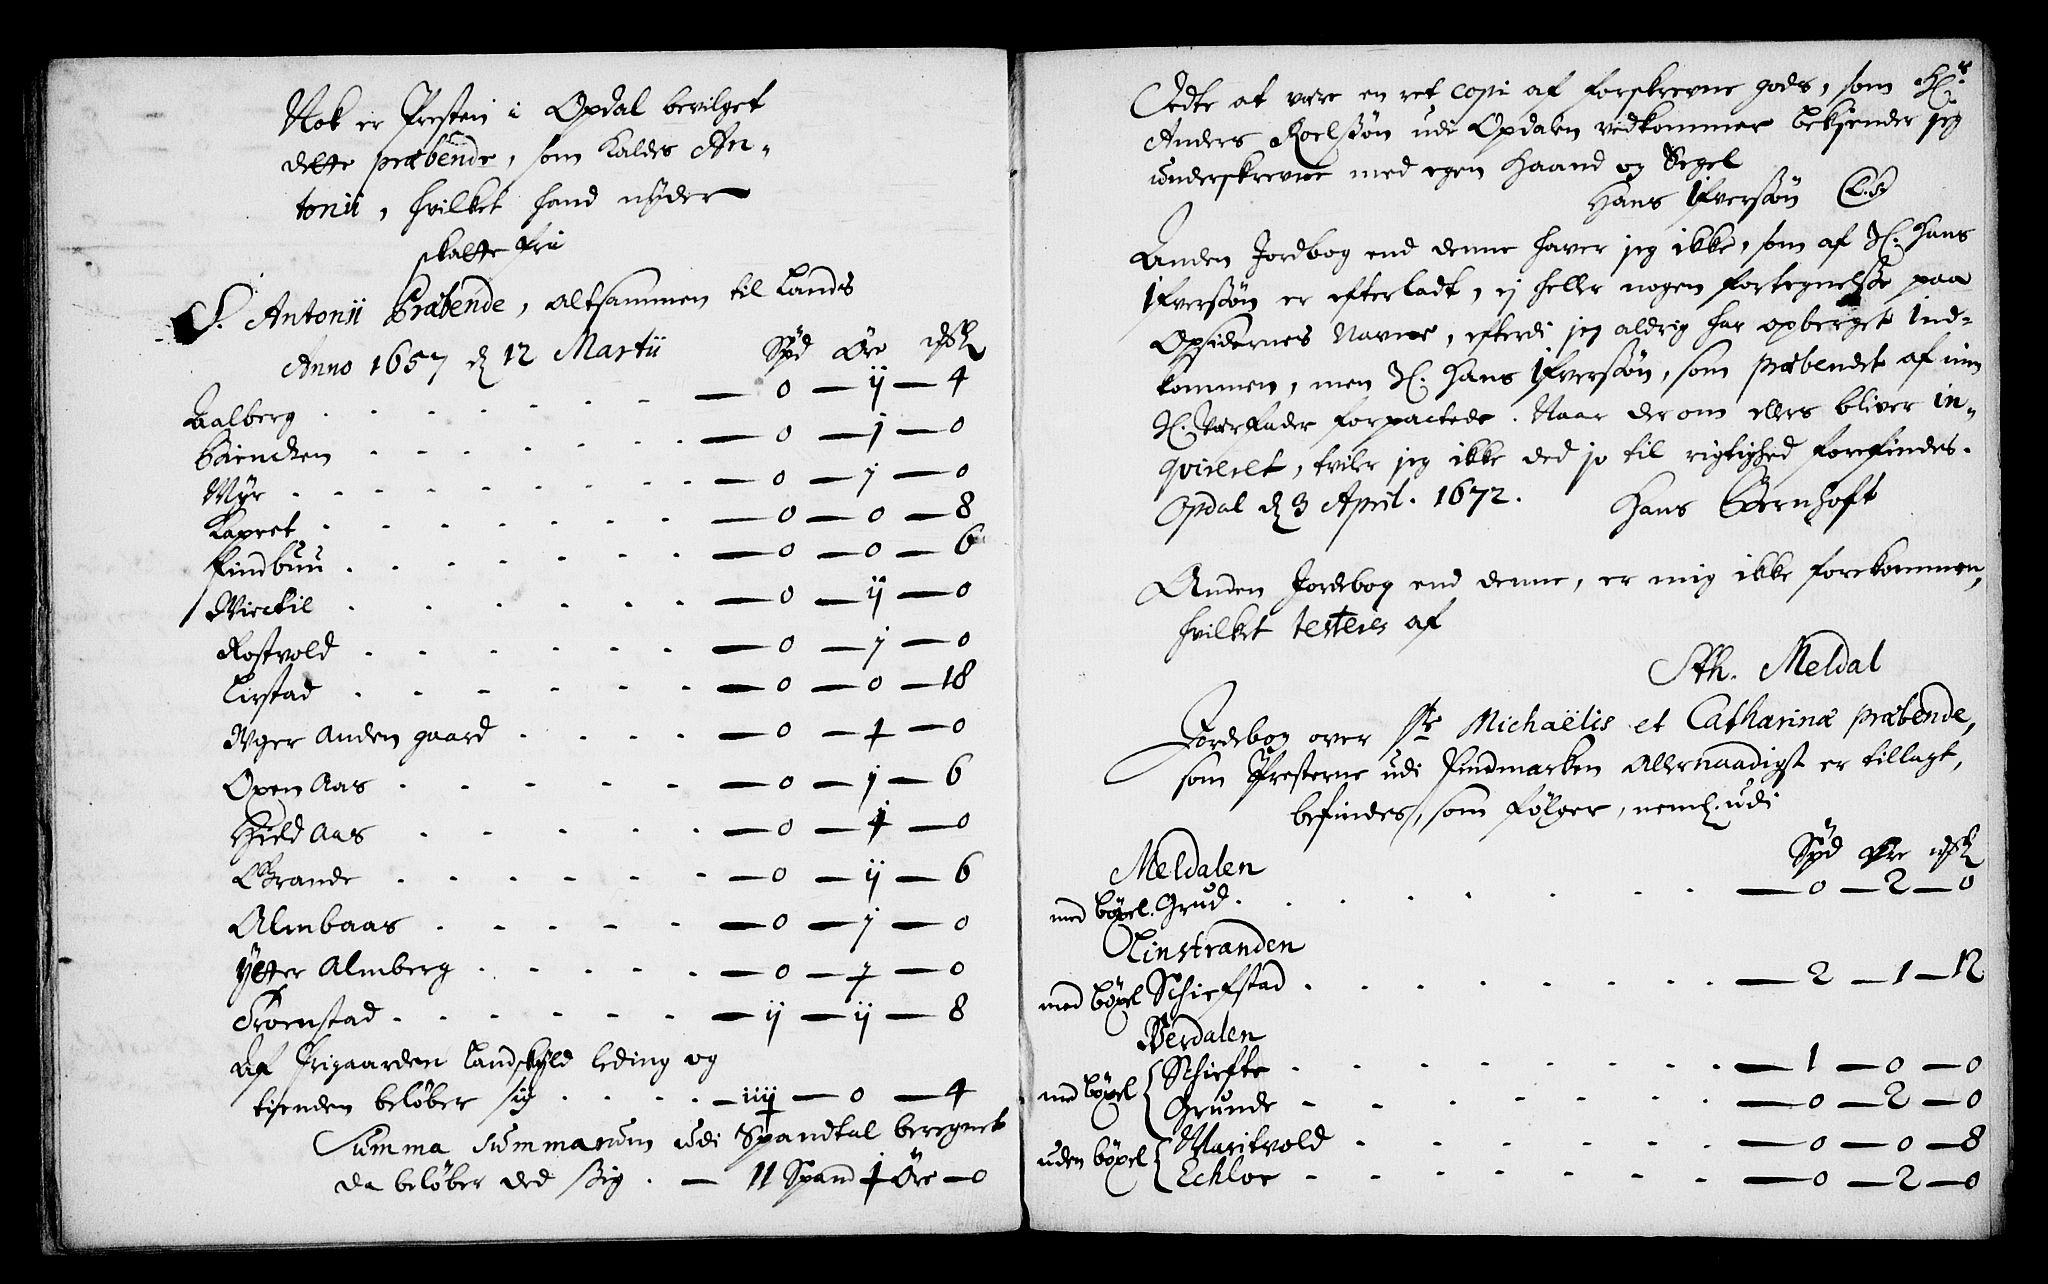 Nok er Presten i Opdal bevilget
dette præbende, som kaldes An-
tonii, hvilket hand nyder
skatte fri
S. Antonii Præbende, altsammen til Lands
Anno 1657 d 12 Martii Spd Öre
Aalberg . . . . . . — 0 — ij — 4
Bæncken . . . . . — 0 — j — 0
Myr . . . . . . . — 0 — j — 0
Kapret . . . . . . — 0 — 0 — 8
Findbuu . . . . . . — 0 — 0 — 6
Miectil . . . . . . — 0 — ij — 0
Rostvold . . . . . . — 0 — j — 0
Lirstad . . . . . . — 0 — 0 — 18
Wger anden gaard . . . . — 0 — — 0
Open Aas . . . . . — 0 — j — 6
Hield Aas . . . . . — 0 — — 0
Brande . . . . . . — 0 — ij — 6
Almbaas . . . . . — 0 — j — 0
Ytter Almberg . . . . . — 0 — — 0
Troenstad . . . . . . — ij — ij — 8
Af Prigaarden Landskyld leding og
tienden beløber sig . . . . — iiij — 0 — 4
Summa Summarum udi Spandtal beregnet
da beløber ded sig . — 11 Spand Öre — 0
Dette at være en ret copi af forskrevne gods, som Hr.
Anders Roelssøn udi Opdalen vedkommer bekjender jeg
underskrevne med egen Haand og Segel
Hans Ifverssøn L.S.
Anden Jordbog end denne haver jeg ikke, som af H. Hans
Ifverssøn er efterladt, ej heller nogen fortegnelse paa
Opsidernes Navne, efterdi jeg aldrig har opberget Ind-
kommen, men H. Hans Ifverssøn, som præbendet af min
H. Værfader forpactede. Naar derom ellers bliver in-
qvireret, tvilr jeg ikke ded jo til rigtighed forefindes.
Opdal d 3 April. 1672. Hans Bernhoft
Anden Jordebog end denne, er mig ikke forekommen,
hvilket testeres af
Sth. Meldal
Jordebog over Sti Michaëlis et Catharinæ præbende,
som Presterne udi Findmarken Allernaadigst er tillagt,
befindes, som følger, neml. udi
Meldalen Spd Øre
med böxel. Grud . . . . . . . — 0 — 2 — 0
Linstranden
med böxel Schiefstad . . . . . . . — 2 — 1 — 12
Werdalen
med böxel { Schiefte . . . . . . . — 1 — 0 — 0
Grunde . . . . . . . — 0 — 2 — 0
uden böxel { Maritvold . . . . . . — 0 — 0 — 8
Echloe . . . . . . — 0 — 2 — 0